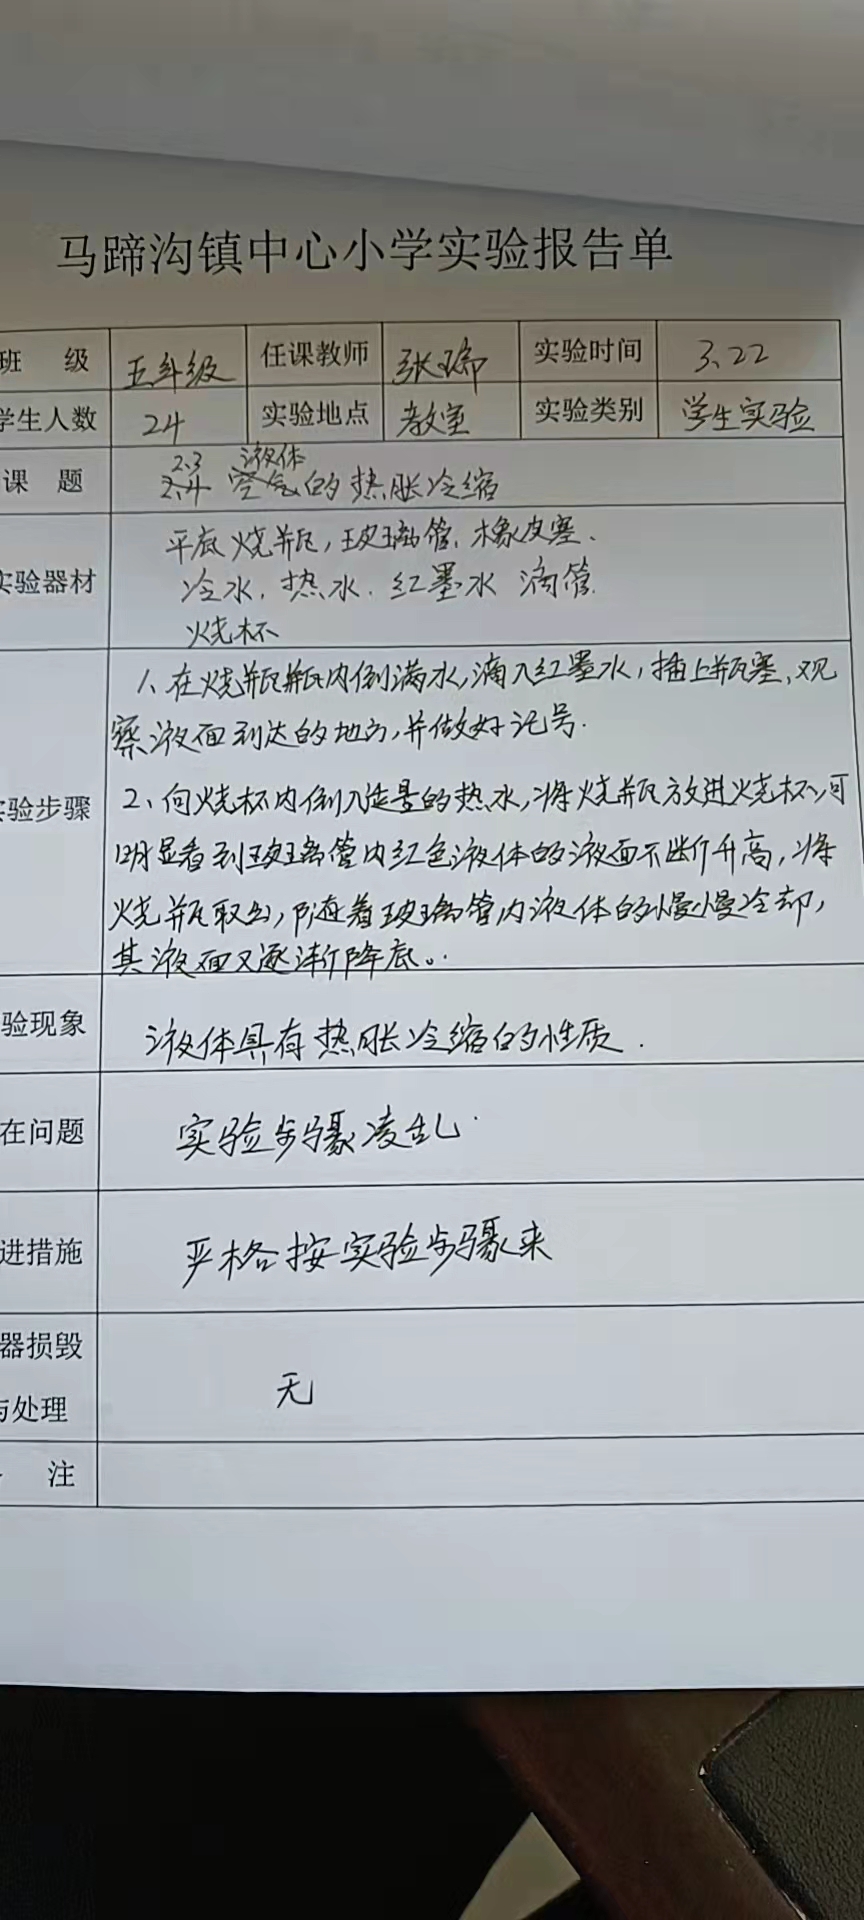 马蹄沟镇中心小学实验报告单
班 级 五年级 任课教师 张瑞 实验时间 3.22
学生人数 24 实验地点 教室 实验类别 学生实验
2.3 液体
课 题 2.4 空气的热胀冷缩
平底烧瓶，玻璃管、橡皮塞、
实验器材 冷水、热水、红墨水 滴管
烧杯
1、在烧瓶瓶内倒满水，滴入红墨水，插上瓶塞，观
察液面到达的地方，并做好记号.
实验步骤 2、向烧杯内倒入适量的热水，将烧瓶放进烧杯，可
明显看到玻璃管内红色液体的液面不断升高，将
烧瓶取出，随着玻璃管内液体的慢慢冷却，
其液面又逐渐降底。
验现象 液体具有热胀冷缩的性质.
在问题 实验步骤凌乱.
进措施 严格按实验步骤来
器损毁
与处理 无
注